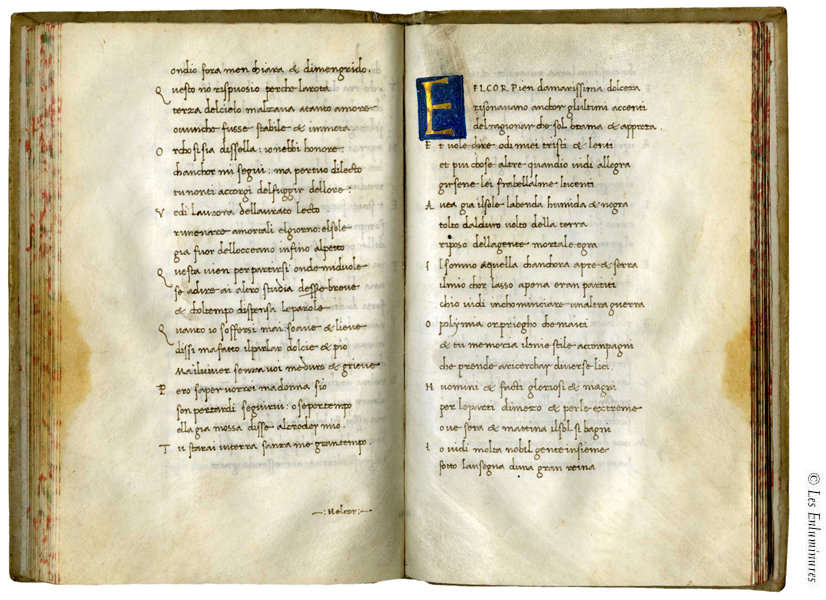 ondio fora men chiara & dimengrido.
Q uesto no rispuosio perche larota
terza delcielo malzava atanto amore
ovunche fusse stabile & inmota
O rchosisia dissella: ionebbi honore,
chanchor mi segui: ma pertuo dilecto
tunonti accorgi delfuggir dellore:
V edi laurora dellaurato lecto
rimenare amortali elgiorno: elsole
gia fuor dellocceano infino alpetto
Q uesta vien perpartirsi onde miduole
se adire ai altro studia desse breve
& choltempo dispensa leparole
Q uanto io soffersi mai soave & lieve
dissi mafatto ilparlar dolcie & pio
Mailviver senza voi me duro & grieve
P ero saper vorrei madonna sio
son pertardi seguirvi: o sepertempo
ella gia mossa disse alcroder mio
T u starai interra sanza me grantempo.
: Nelcor :
E EL COR Pien damarissima dolceza
risonavano anchor glultimi accenti
delragionar che sol brama & appreza.
E t vole dire odi miei tristi & lenti
et piu chose altre quandio vidi allegra
girsene lei frabellalme lucenti
A vea gia ilsole labenda humida & negra
tolto dalduro volto della terra
riposo dellagente mortale egra
I l sonno & quella chanchora apre & serra
ilmio chor lasso apena eran partiti
chio vidi inchominciare unaltra guerra
O polymia or priegho che maiti
& tu memoria ilmio stile accompagni
che prende aricerchar diverse liti.
H uomini & facti gloriosi & magni
per leparti dimezo & perle extreme
ove sera & mattina ilsol si bagni
I o vidi molta nobil gente insieme
sotto lansegna duna gran reina
© Les Enluminures